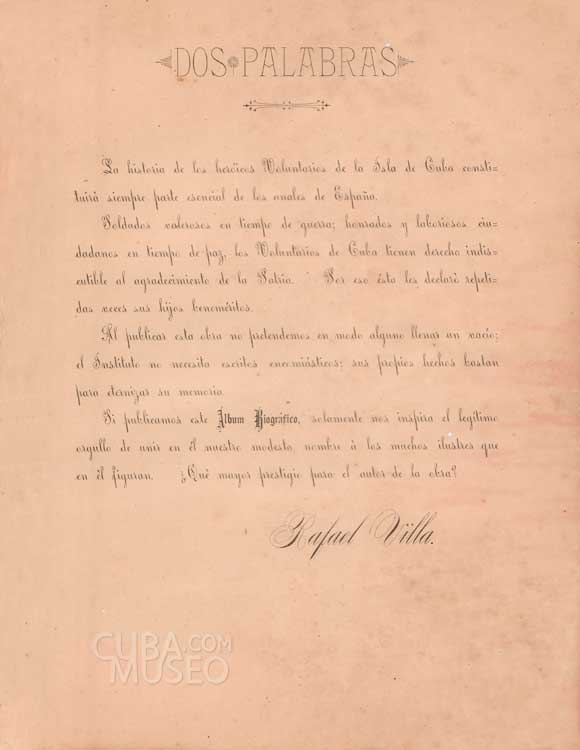 DOS PALABRAS
La historia de los heróicos Voluntarios de la Isla de Cuba consti-
tuirá siempre parte esencial de los anales de España.
Soldados valerosos en tiempo de guerra; honrados y laboriosos ciu-
dadanos en tiempo de paz, los Voluntarios de Cuba tienen derecho indis-
cutible al agradecimiento de la Patria. Por eso ésta les declaró repeti-
das veces sus hijos beneméritos.
Al publicar esta obra no pretendemos en modo alguno llenar un vacío;
el Instituto no necesita escritos encomiásticos; sus propios hechos bastan
para eternizar su memoria.
Si publicamos este Álbum Biográfico, solamente nos inspira el legítimo
orgullo de unir en él nuestro modesto nombre á los muchos ilustres que
en él figuran. ¿Qué mayor prestigio para el autor de la obra?
Rafael Villa.
CUBA.COM
MUSEO